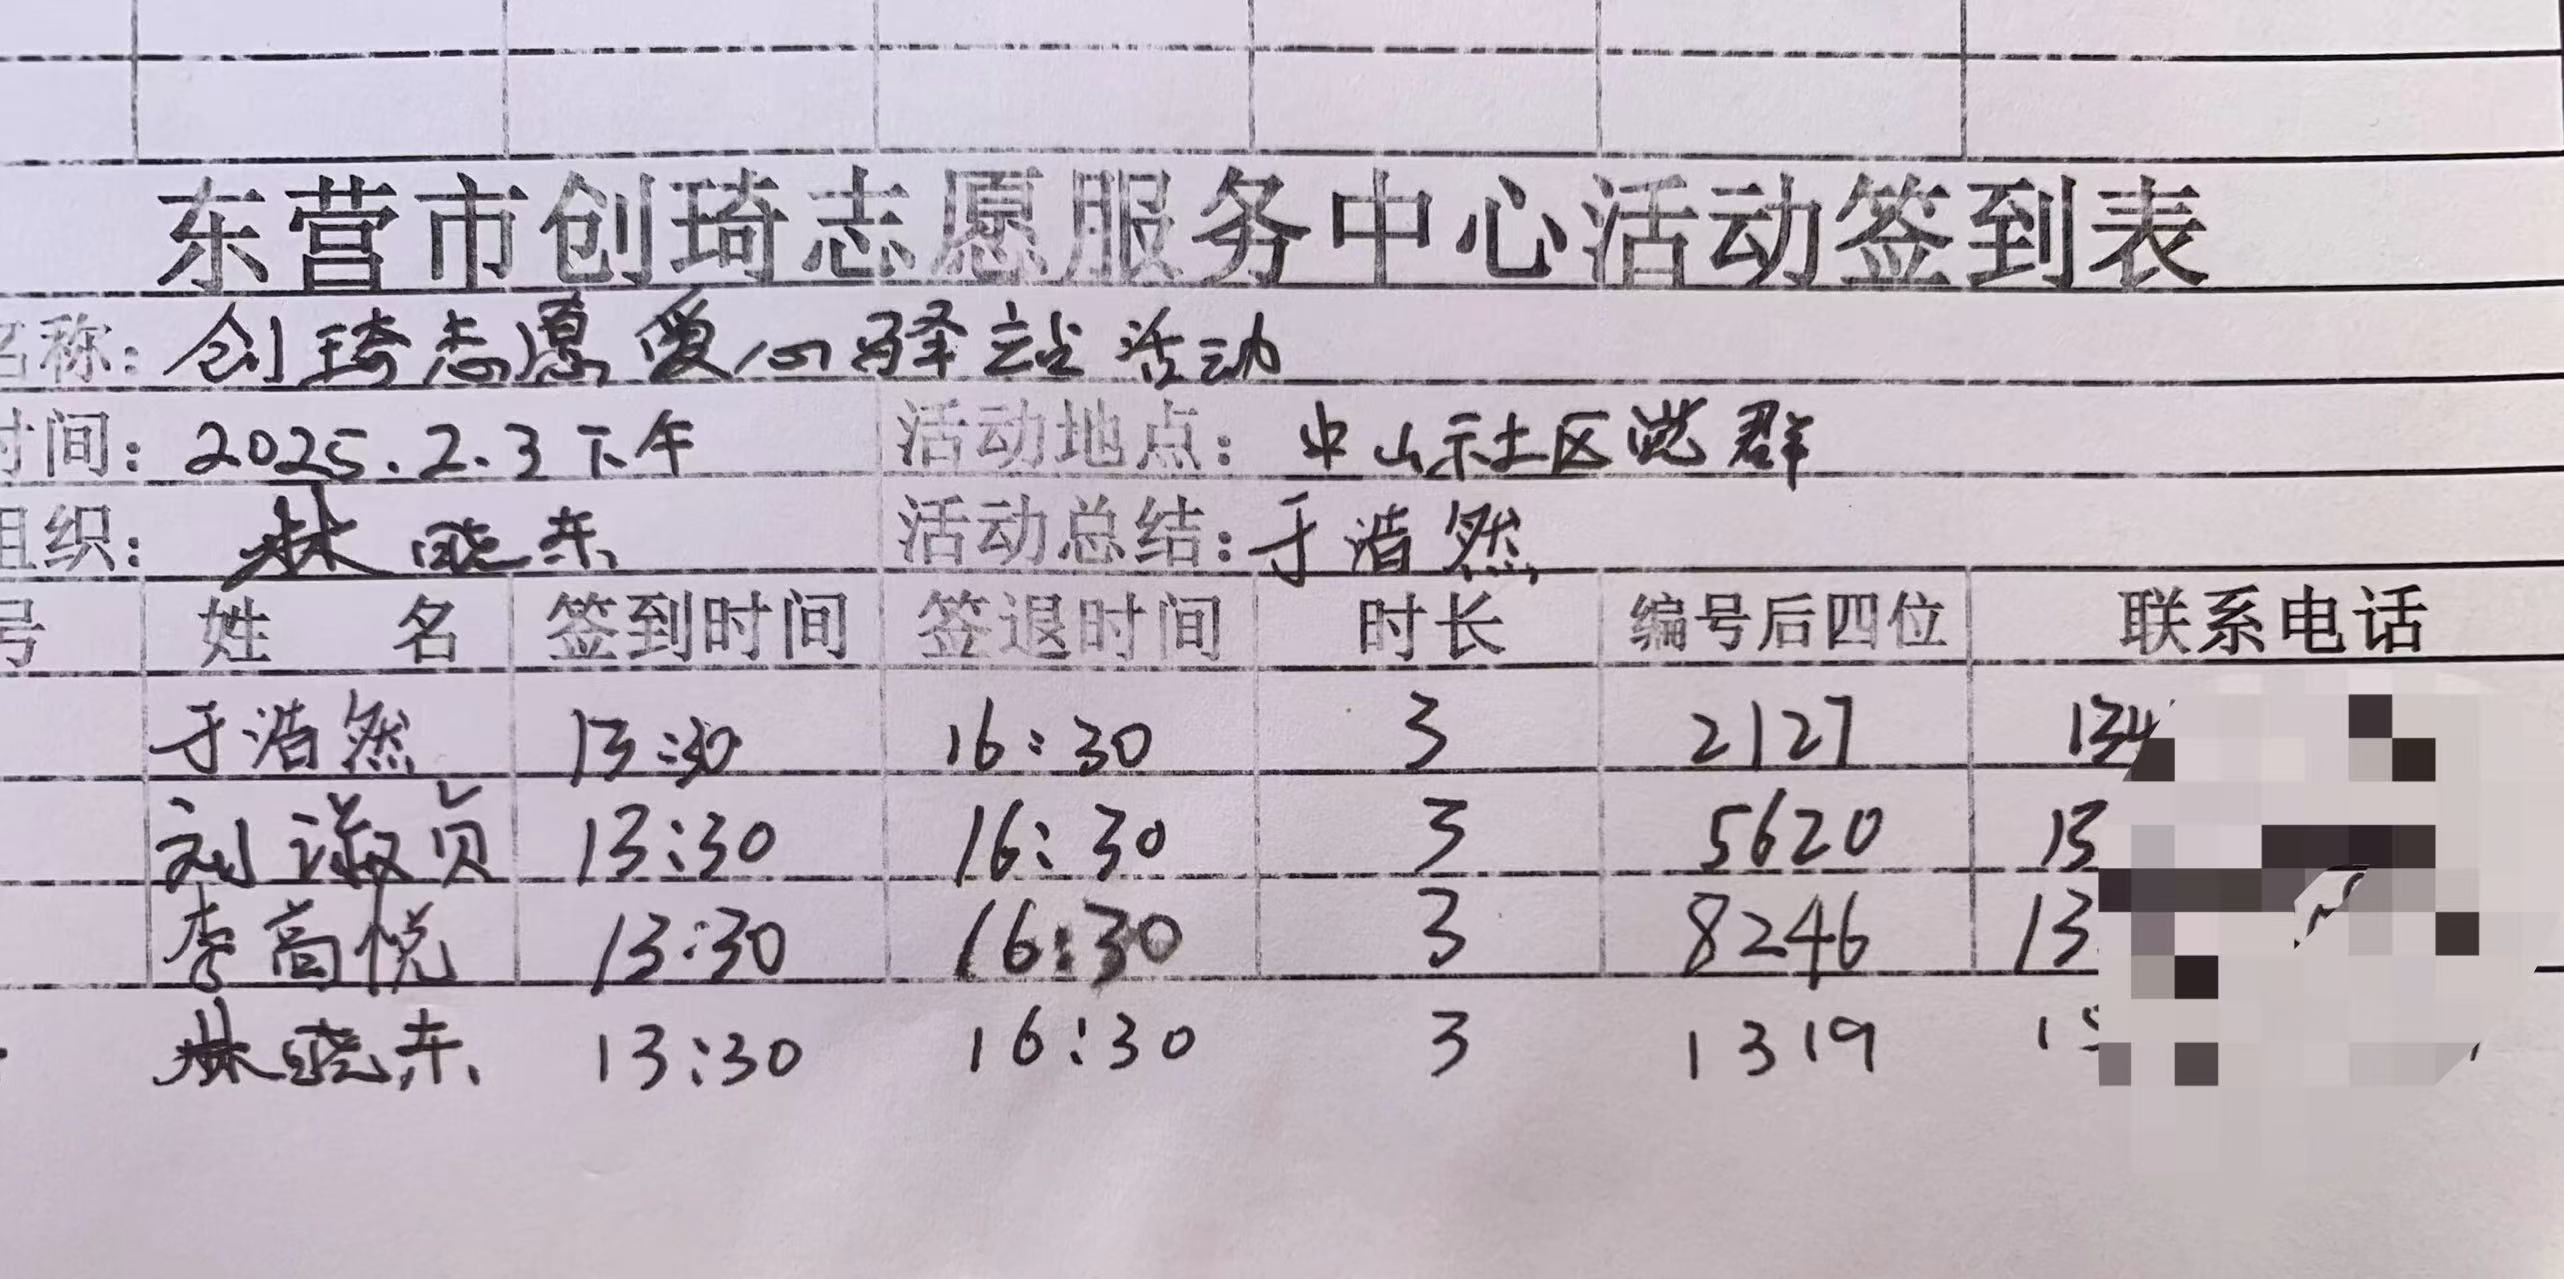 东营市创琦志愿服务中心活动签到表
名称：创琦志愿爱心驿站活动
时间：2025.2.3下午 活动地点：中山社区党群
组织：林晓东 活动总结：于浩然
号 姓 名 签到时间 签退时间 时长 编号后四位 联系电话
于浩然 13:30 16:30 3 2127 134
刘淑贞 13:30 16:30 3 5620 13
李高悦 13:30 16:30 3 8246 13
林晓东 13:30 16:30 3 1319